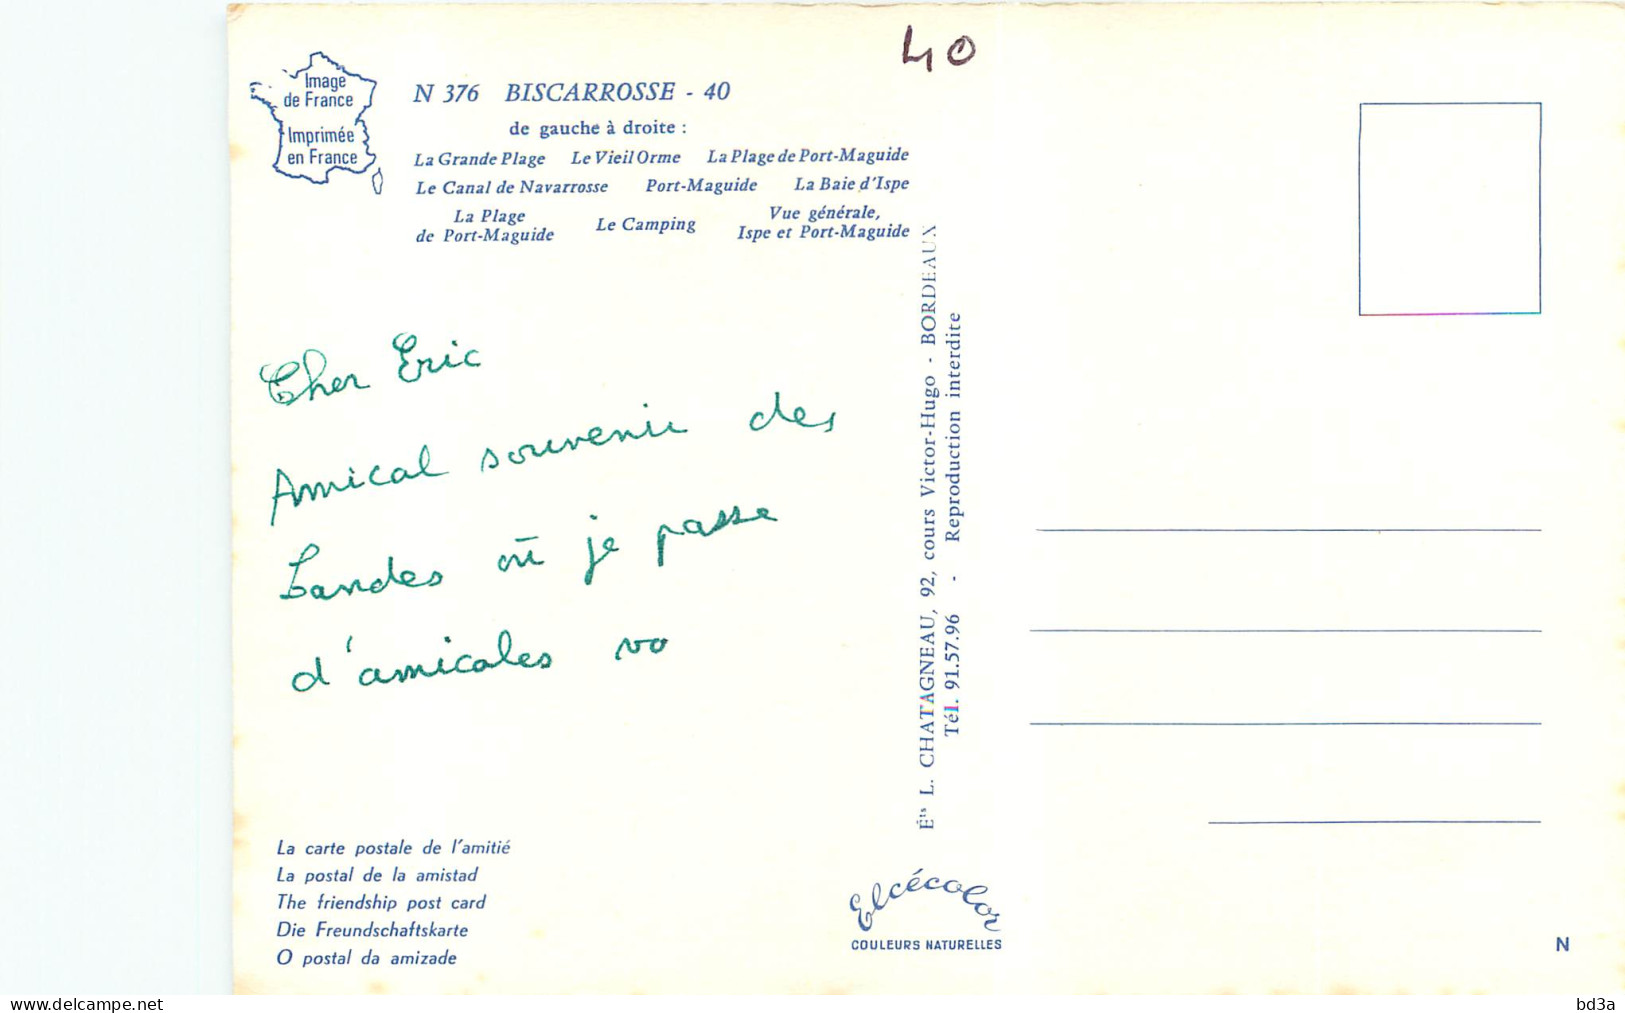 40
Image
de France
Imprimée
en France
N 376 BISCARROSSE - 40
de gauche à droite :
La Grande Plage Le Vieil Orme La Plage de Port-Maguide
Le Canal de Navarrosse Port-Maguide La Baie d'Ispe
La Plage
de Port-Maguide
Le Camping
Vue générale,
Ispe et Port-Maguide
Cher Eric
Amical souvenir des
Landes où je passe
d'amicales vo
La carte postale de l'amitié
La postal de la amistad
The friendship post card
Die Freundschaftskarte
O postal da amizade
Éts L. CHATAGNEAU, 92, cours Victor-Hugo - BORDEAUX
Tél. 91.57.96 - Reproduction interdite
Elcécolor
COULEURS NATURELLES
N
www.delcampe.net
bd3a